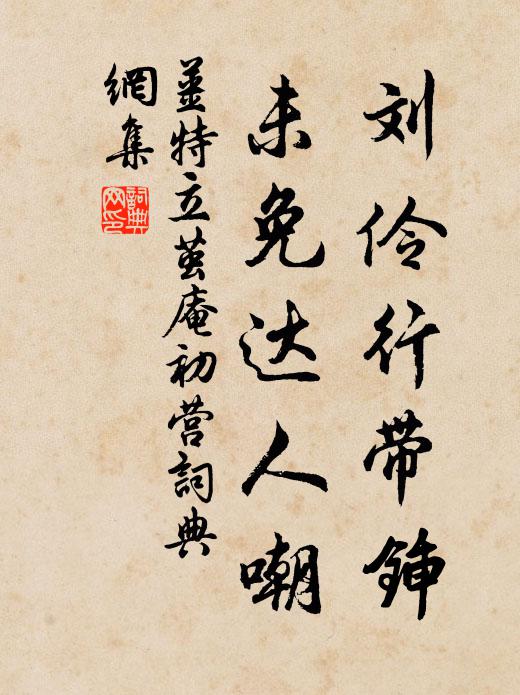 刘伶行带锸
未免达人嘲
薑特立茧庵初营詞典
網集
詞典网印